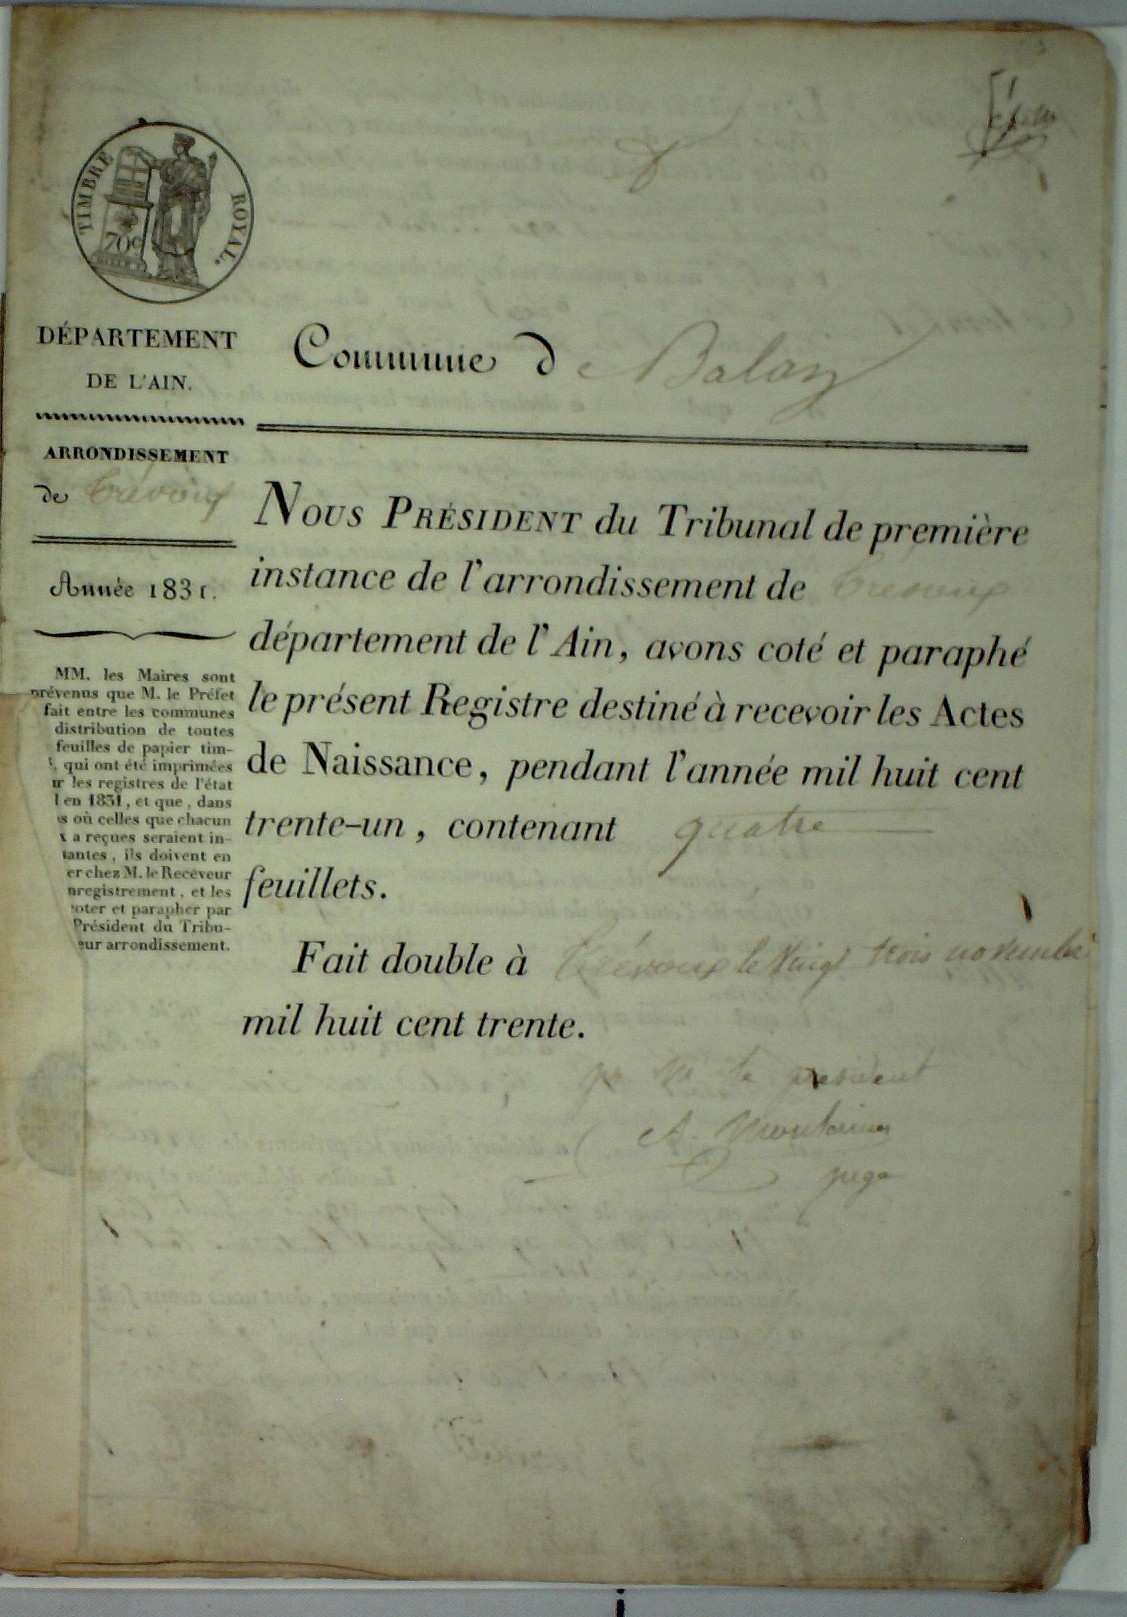 TIMBRE ROYAL.
70c
DÉPARTEMENT
DE L'AIN.
Commune de Balan
ARRONDISSEMENT
de Trévoux
Année 1831.
MM. les Maires sont
prévenus que M. le Préfet
fait entre les communes
distribution de toutes
feuilles de papier tim-
, qui ont été imprimées
ur les registres de l'état
l en 1831, et que, dans
s où celles que chacun
x a reçues seraient in-
tantes, ils doivent en
er chez M. le Receveur
nregistrement, et les
oter et parapher par
Président du Tribu-
eur arrondissement.
NOUS PRÉSIDENT du Tribunal de première
instance de l'arrondissement de Trévoux
département de l'Ain, avons coté et paraphé
le présent Registre destiné à recevoir les Actes
de Naissance, pendant l'année mil huit cent
trente-un, contenant quatre
feuillets.
Fait double à Trévoux le vingt trois novembre
mil huit cent trente.
pr Mr le président
juge